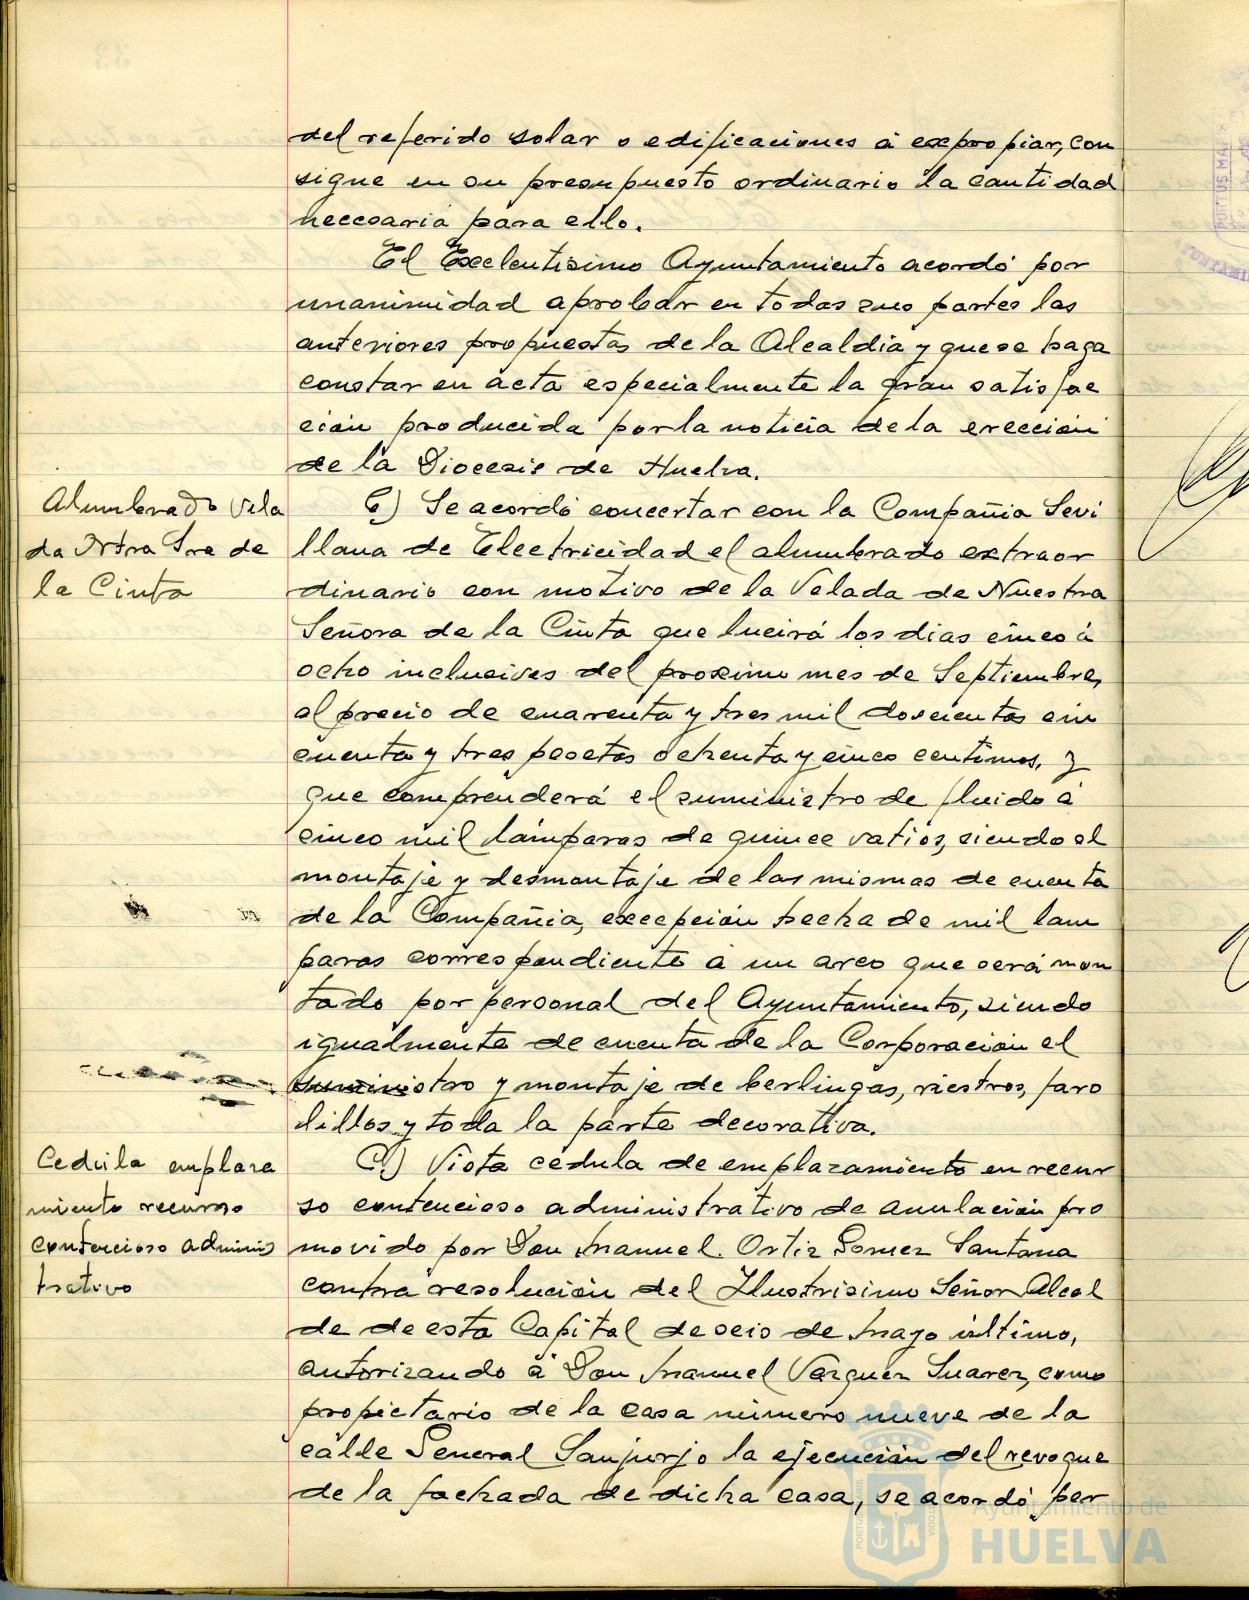 del referido solar o edificaciones á expropiar, con
signe en su presupuesto ordinario la cantidad
necesaria para ello.
El Excelentisimo Ayuntamiento acordó por
unanimidad aprobar en todas sus partes las
anteriores propuestas de la Alcaldia y que se haga
constar en acta especialmente la gran satisfac
ción producida por la noticia de la erección
de la Diocesis de Huelva.
Alumbrado Vela
da Ntra Sra de
la Cinta
6) Se acordó concertar con la Compañia Sevi
llana de Electricidad el alumbrado extraor
dinario con motivo de la Velada de Nuestra
Señora de la Cinta que lucirá los dias cinco á
ocho inclusives del proximo mes de Septiembre,
al precio de cuarenta y tres mil doscientas cin
cuenta y tres pesetas ochenta y cinco centimos, y
que comprenderá el suministro de fluido á
cinco mil lámparas de quince vatios, siendo el
montaje y desmontaje de las mismas de cuenta
de la Compañia, excepción hecha de mil lam
paras correspondiente á un arco que será mon
tado por personal del Ayuntamiento, siendo
igualmente de cuenta de la Corporación el
suministro y montaje de berlingas, riestros, faro
lillos y toda la parte decorativa.
Cedula emplaza
miento recurso
contencioso adminis
trativo
7) Vista cédula de emplazamiento en recur
so contencioso administrativo de anulación pro
movido por Don Manuel Ortiz Gomez Santana
contra resolución del Ilustrisimo Señor Alcal
de de esta Capital de seis de Mayo último,
autorizando á Don Manuel Vazquez Suarez, como
propietario de la casa número nueve de la
calle General Sanjurjo la ejecución del revoque
de la fachada de dicha casa, se acordó per
Ayuntamiento de
HUELVA